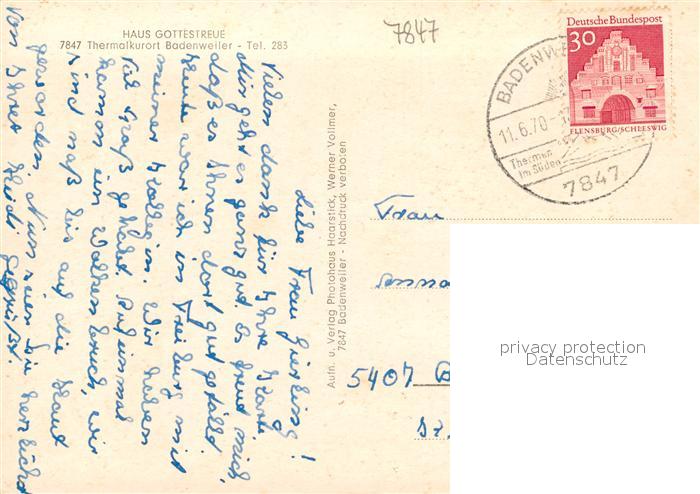 HAUS GOTTESTREUE
7847 Thermalkurort Badenweiler - Tel. 283
7847
Deutsche Bundespost
30
FLENSBURG/SCHLESWIG
BADENWE
11.6.70
Thermen
im Süden
7847
Liebe Frau
Vielen Dank für Ihre Karte.
Mir geht es ganz gut. Es freut mich,
daß es Ihnen dort gut gefällt.
Heute war ich in Freiburg mit
meiner Kollegin. Wir haben
viel Spaß gehabt. Auf einmal
kam ein Wolkenbruch, wir
sind naß bis auf die Haut
geworden. Nun seien Sie herzlichst
von Ihrer Heidi gegrüßt.
Aufn. u. Verlag Photohaus Haarstick, Werner Vollmer,
7847 Badenweiler - Nachdruck verboten
Frau
5407 B
privacy protection
Datenschutz